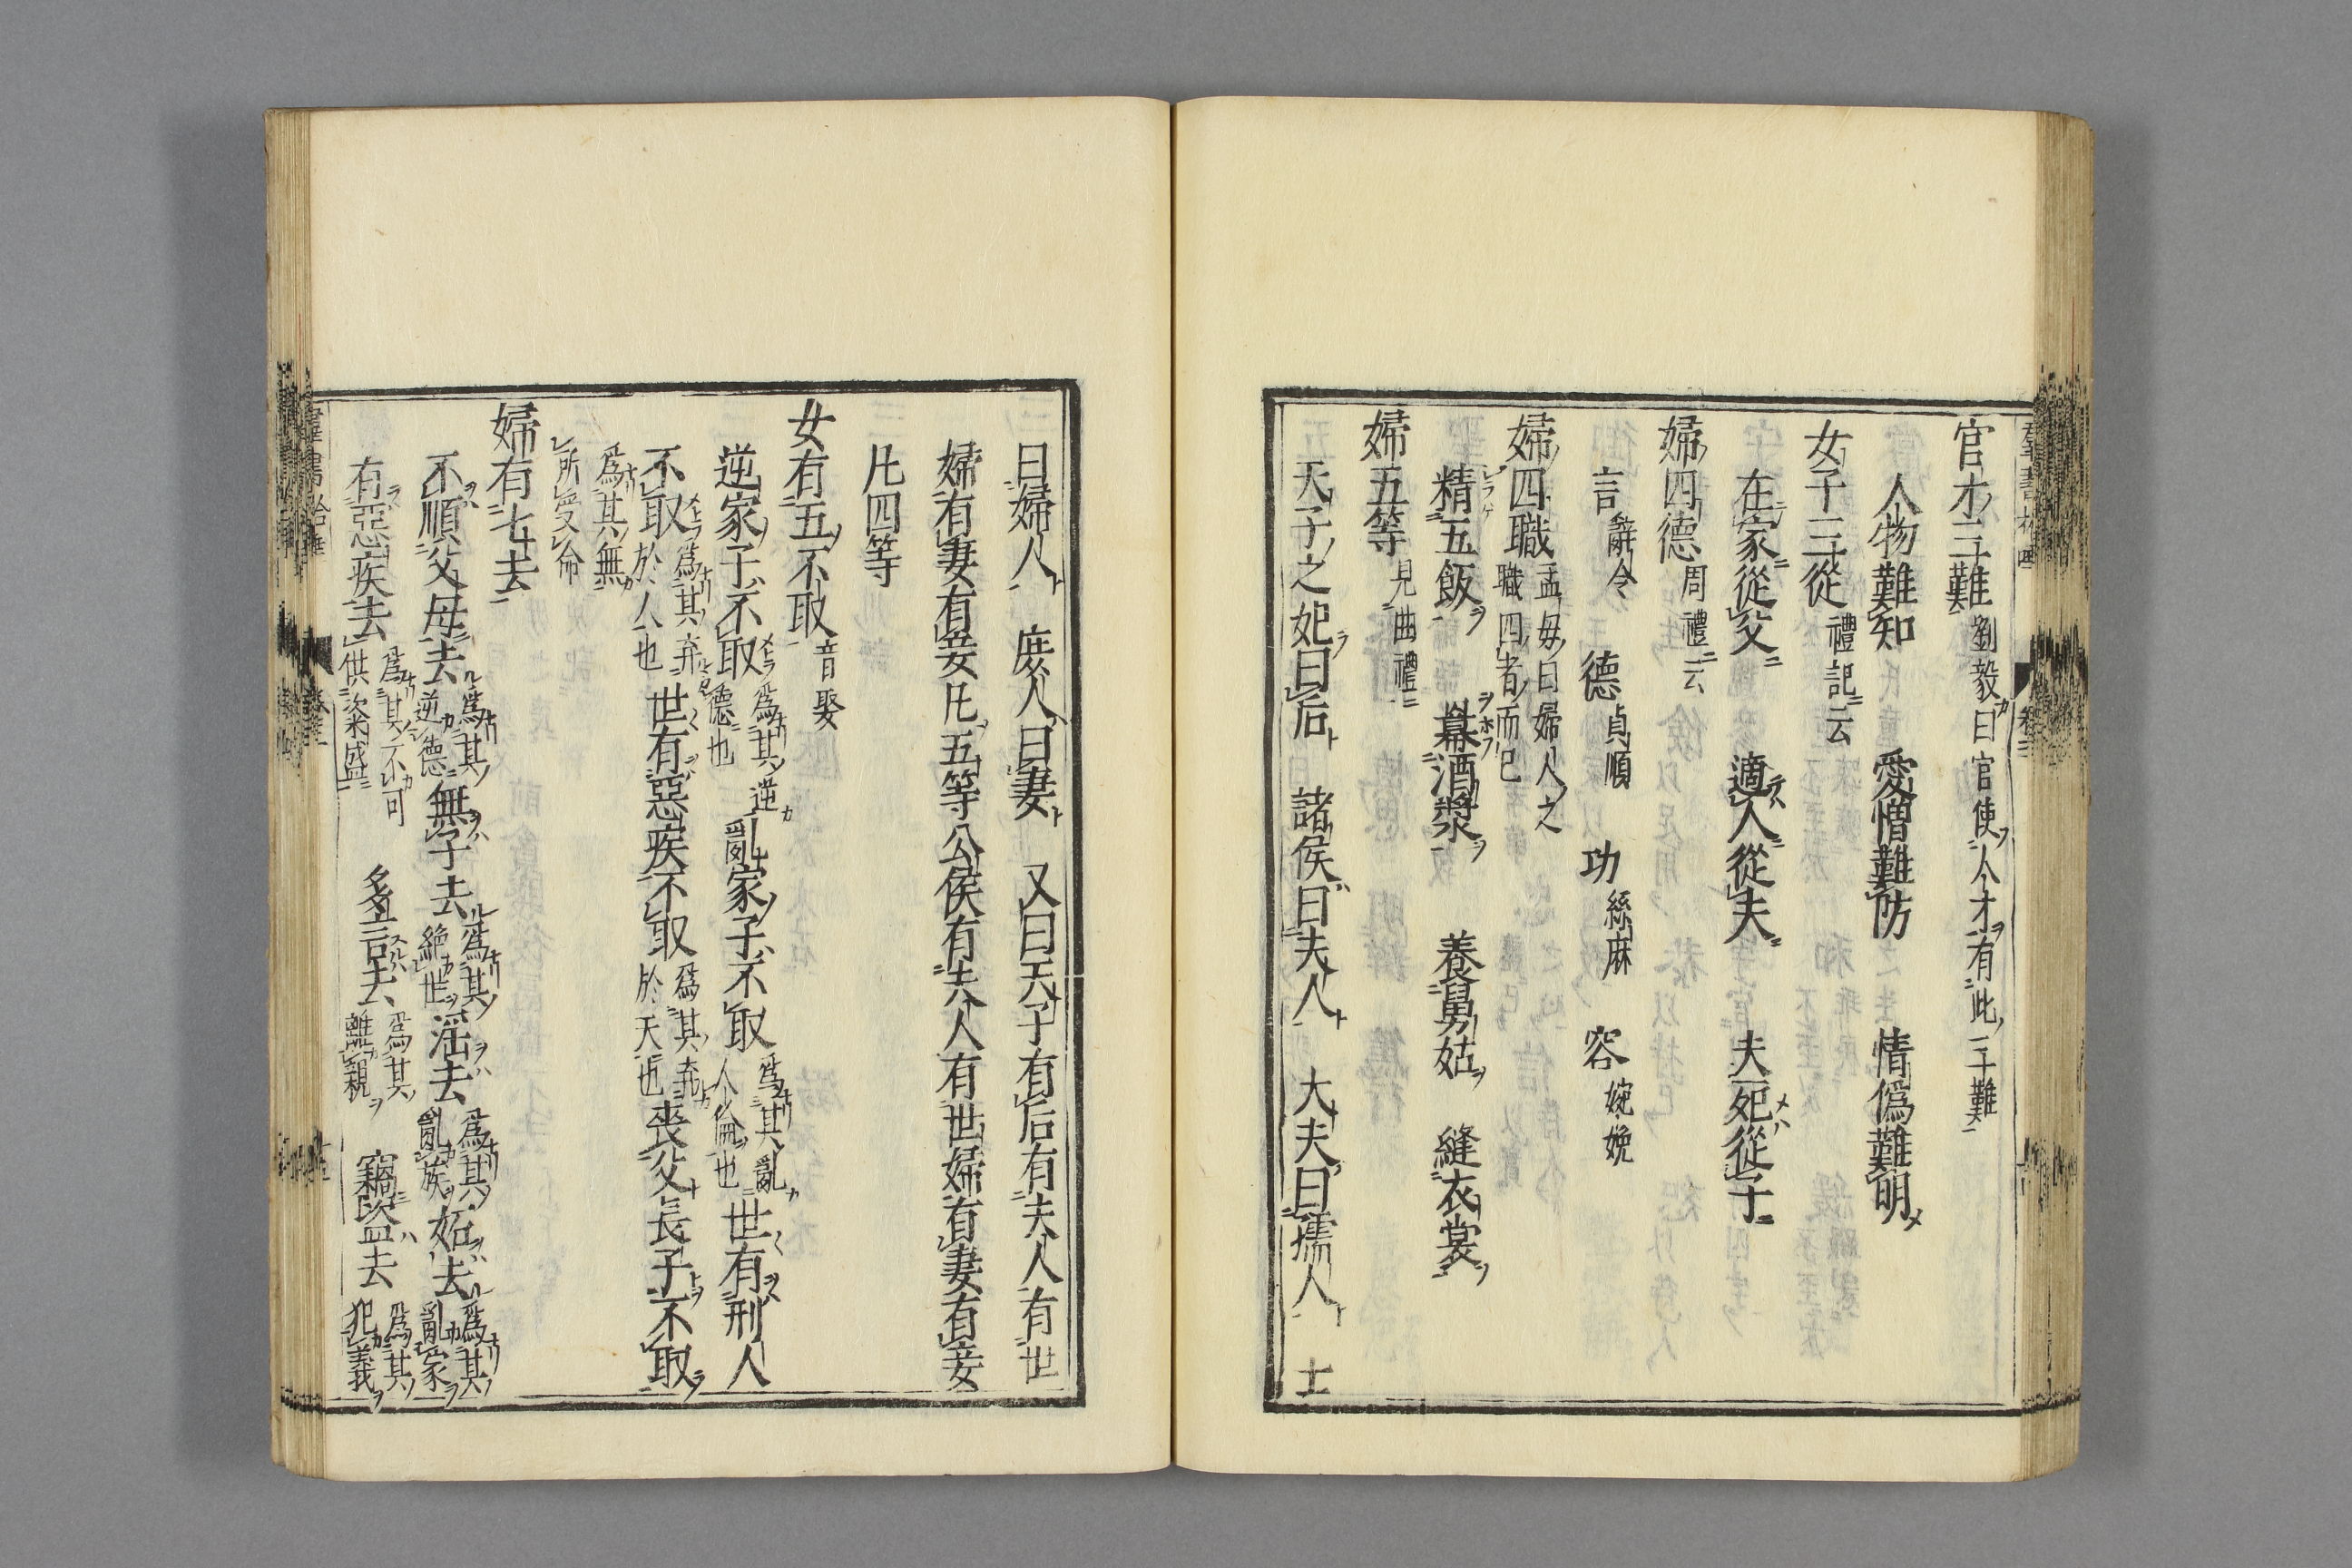 官才三難 劉毅曰官使人才有此三難
人物難知 愛憎難防 情偽難明
女子三從 禮記云
在家從父 適人從夫 夫死從子
婦四德 周禮云
言 辭令 德 貞順 功 絲麻 容 婉娩
婦四職 孟母曰婦人之職四者而已
精五飯 冪酒漿 養舅姑 縫衣裳
婦五等 見曲禮
天子之妃曰后 諸侯曰夫人 大夫曰孺人 士
曰婦人 庶人曰妻 又曰天子有后有夫人有世
婦有妻有妾凡五等公侯有夫人有世婦有妻有妾
凡四等
女有五不取 音娶
逆家子不取 爲其逆德也 亂家子不取 爲其亂人倫也 世有刑人
不取 爲其弃於人也 世有惡疾不取 爲其弃於天也 喪父長子不取
爲其無所受命
婦有七去
不順父母去 爲其逆德 無子去 爲其絶世 淫去 爲其亂族 妬去 爲其亂家
有惡疾去 爲其不可供粢盛 多言去 爲其離親 竊盜去 爲其犯義